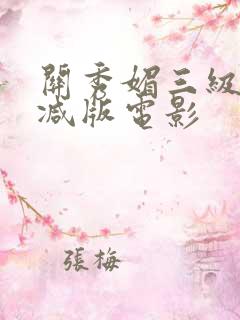 關秀媚三級
減版電影
張梅